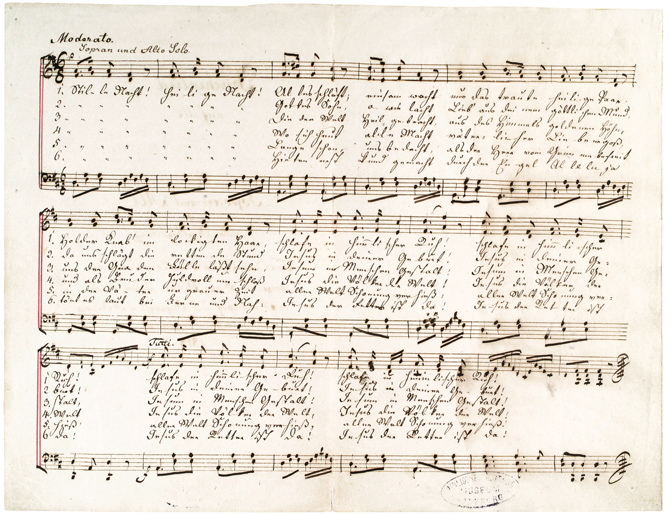 Moderato.
Sopran und Alto Solo.
1. Stille Nacht! Heilige Nacht! Alles schläft; einsam wacht nur das traute heilige Paar.
2. " " " " " " Gottes Sohn, o wie lacht Lieb' aus deinem göttlichen Mund,
3. " " " " " " Die der Welt Heil gebracht, aus des Himmels goldenen Höhn,
4. " " " " " " Wo sich heut alle Macht väterlicher Liebe ergoß,
5. " " " " " " Lange schon uns bedacht, als der Herr vom Grimme befreit
6. " " " " " " Hirten erst kund gemacht durch der Engel Alleluja
1. Holder Knab' im lockigten Haare; schlafe in himmlischer Ruh! schlafe in himmlischer
2. da uns schlägt die rettende Stund. Jesus in deiner Geburt! Jesus in deiner Ge-
3. uns der Gnaden Fülle läßt sehn, Jesum in Menschengestalt! Jesum in Menschen Ge-
4. und als Bruder huldvoll umschloß Jesus die Völker der Welt! Jesus die Völker der
5. in der Väter urgrauer Zeit aller Welt Schonung verhieß! aller Welt Schonung ver-
6. tönt es laut bei Ferne und Nah: Jesus der Retter ist da! Jesus der Retter ist
Tutti.
1 Ruh! schlafe in himmlischer Ruh! schlafe in himmlischer Ruh!
2 burt! Jesus in deiner Geburt! Jesus in deiner Geburt!
3 stalt, Jesum in Menschen Gestalt! Jesum in Menschen Gestalt!
4 Welt Jesus die Völker der Welt, Jesus die Völker der Welt!
5 hieß, aller Welt Schonung verhieß, aller Welt Schonung verhieß!
6 da! Jesus der Retter ist da! Jesus der Retter ist da!